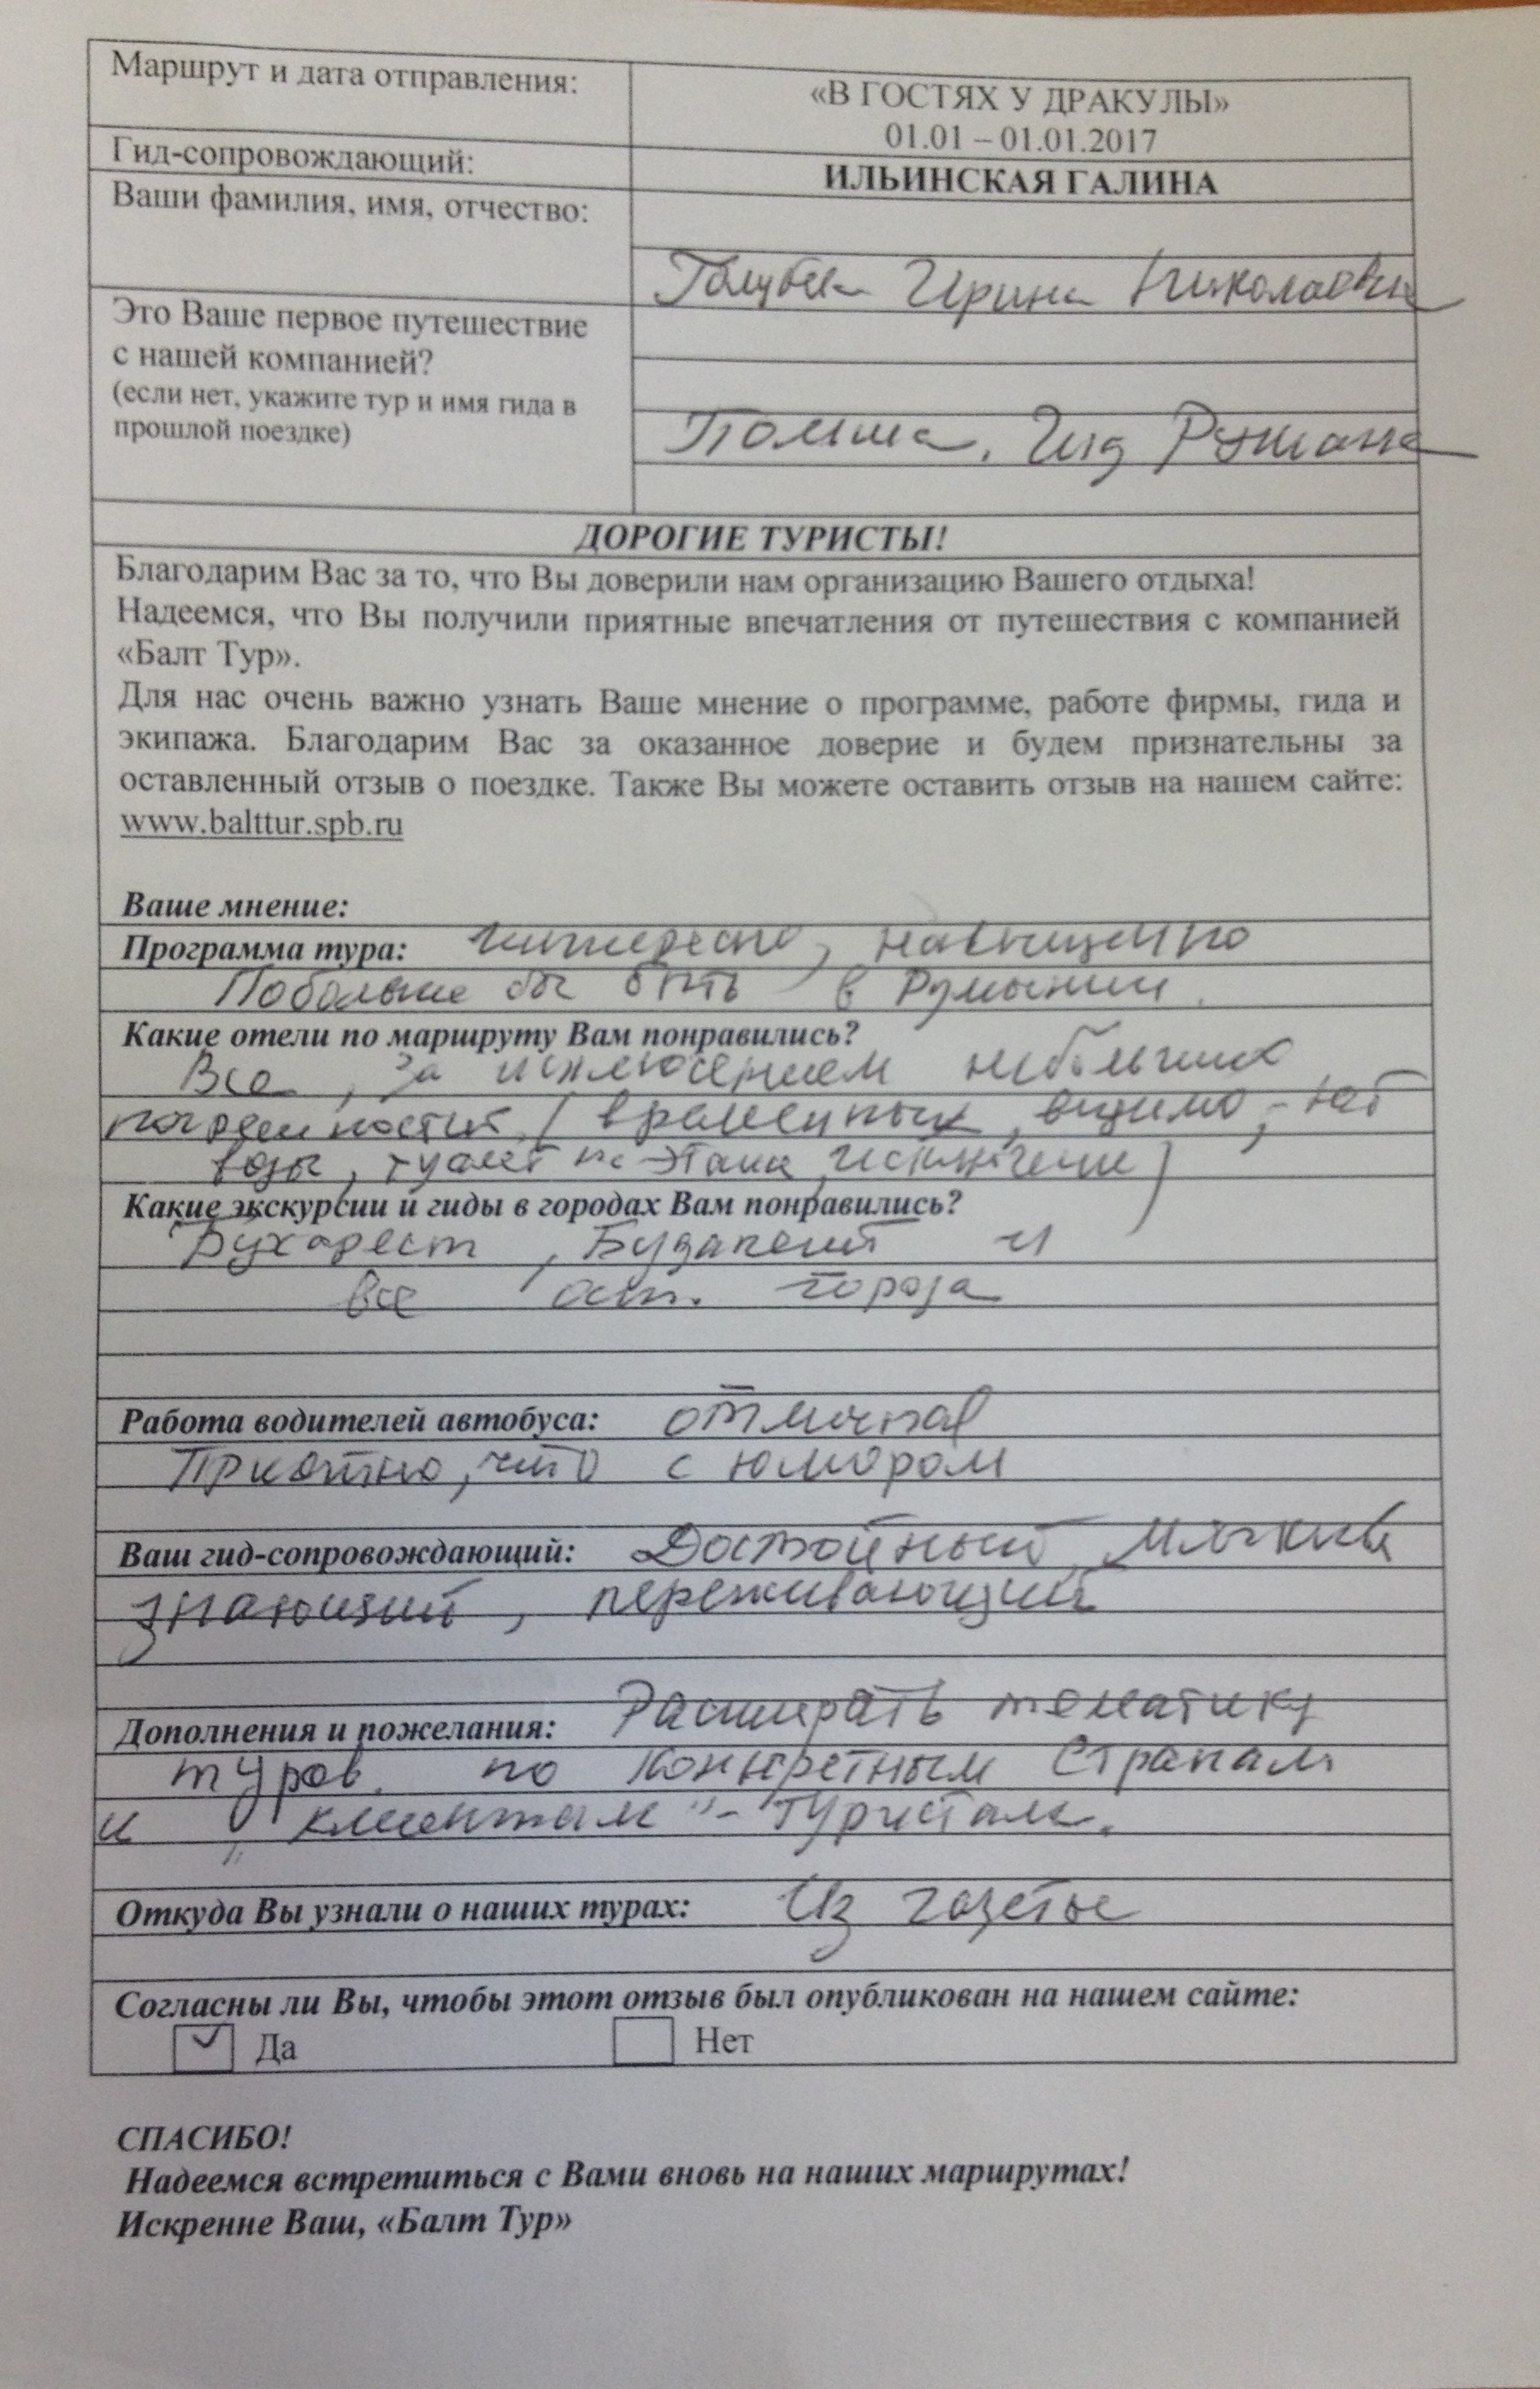 Маршрут и дата отправления:
«В ГОСТЯХ У ДРАКУЛЫ»
01.01 – 01.01.2017
Гид-сопровождающий:
ИЛЬИНСКАЯ ГАЛИНА
Ваши фамилия, имя, отчество:
Ирина Николаевна
Это Ваше первое путешествие
с нашей компанией?
(если нет, укажите тур и имя гида в
прошлой поездке)
Польша. Гид
ДОРОГИЕ ТУРИСТЫ!
Благодарим Вас за то, что Вы доверили нам организацию Вашего отдыха!
Надеемся, что Вы получили приятные впечатления от путешествия с компанией
«Балт Тур».
Для нас очень важно узнать Ваше мнение о программе, работе фирмы, гида и
экипажа. Благодарим Вас за оказанное доверие и будем признательны за
оставленный отзыв о поездке. Также Вы можете оставить отзыв на нашем сайте:
www.balttur.spb.ru
Ваше мнение:
Программа тура: интересно, насыщенно
Побольше бы быть в Румынии.
Какие отели по маршруту Вам понравились?
Все, за исключением небольших
погрешностей (временных, видимо, - нет
воды, туалет на этаже,
Какие экскурсии и гиды в городах Вам понравились?
Бухарест, Будапешт и
все ост. города
Работа водителей автобуса: отличная
Приятно, что с юмором
Ваш гид-сопровождающий: Достойный, мягкий
знающий, переживающий
Дополнения и пожелания: Расширять тематику
туров по конкретным странам
и "клиентам" - туристам.
Откуда Вы узнали о наших турах: Из газеты
Согласны ли Вы, чтобы этот отзыв был опубликован на нашем сайте:
Да Нет
СПАСИБО!
Надеемся встретиться с Вами вновь на наших маршрутах!
Искренне Ваш, «Балт Тур»